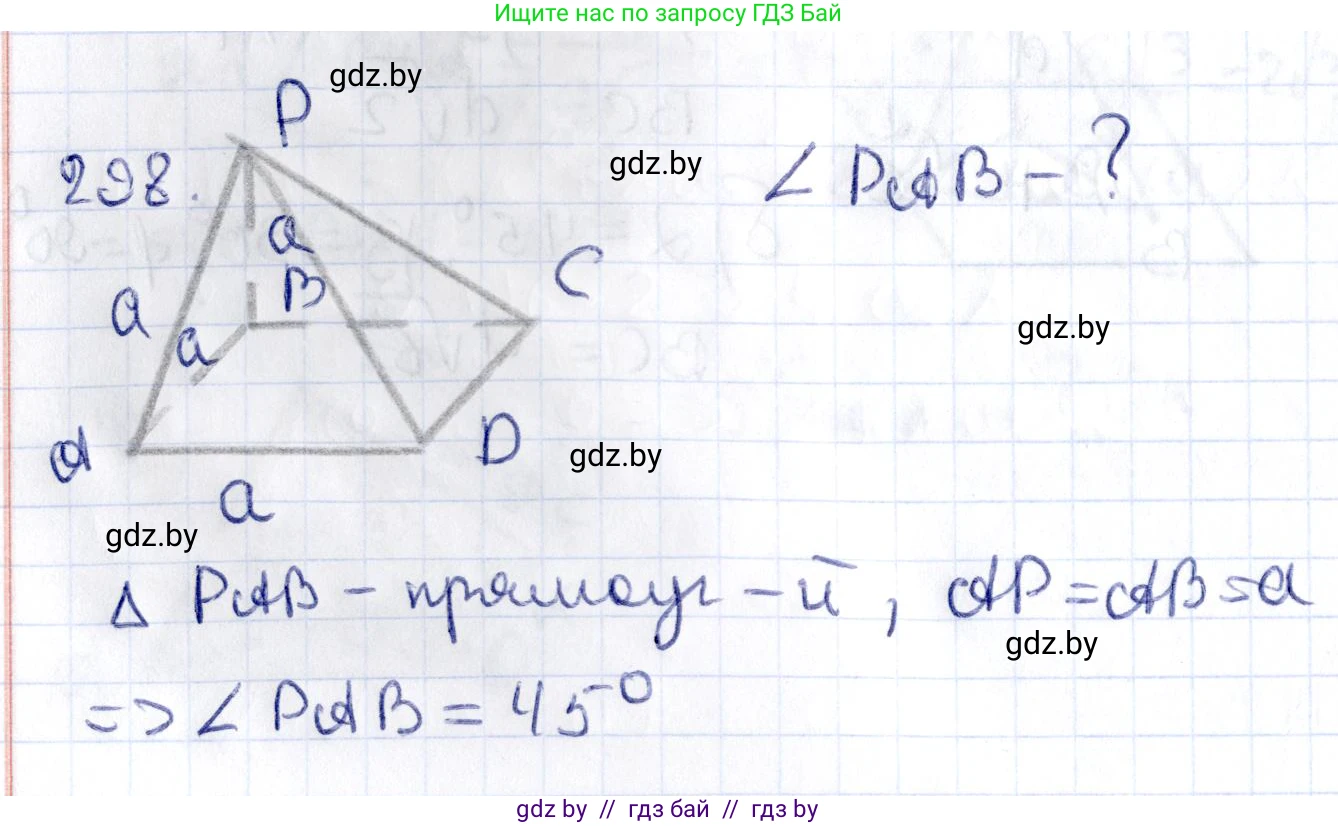 Ищите нас по запросу ГДЗ Бай
gdz.by
P
298.
gdz.by
∠ PAB - ?
a
B
C
a
a
gdz.by
A
D
gdz.by
a
gdz.by
Δ PAB - прямоуг - й, AP = AB = a
gdz.by
=> ∠ PAB = 45°
gdz.by // гдз бай // гдз by